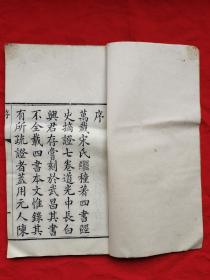 序
萬載宋氏繼種著四書經
史摘證七卷道光中長白
興君存嘗刻於武昌其書
不全載四書本文惟錄其
有所疏證者蓋用元人陳
序